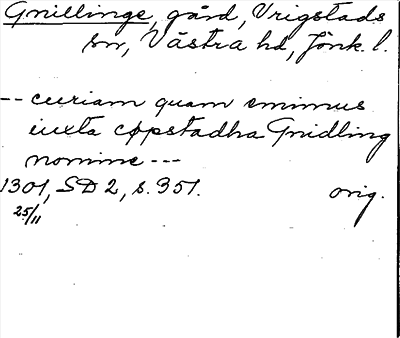 Gnillinge, gård, Vrigstads
sn, Västra hd, Jönk. l.
-- curiam quam emimus
iuxta cøpstadha Gnidling
nomine ---
1301, SD 2, s. 351. orig.
25/11